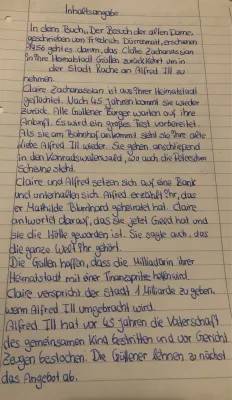 Inhaltsangabe
In dem Buch „Der Besuch der alten Dame,
geschrieben von Friedrich Dürrenmatt, erschienen
1956 geht es darum, das Claire Zachanassian
in Ihre Heimatstadt Güllen zurückkehrt um in
der Stadt Rache an Alfred Ill zu
nehmen.
Claire Zachanassian ist aus ihrer Heimatstadt
geflüchtet. Nach 45 Jahren kommt sie wieder
zurück. Alle Güllener Bürger warten auf ihre
Ankunft. Es wird ein großes Fest vorbereitet.
Als sie am Bahnhof ankommt sieht sie Ihre alte
liebe Alfred Ill wieder. Sie gehen anschließend
in den Konradsweilerwald, wo auch die Petersche
Scheune steht.
Claire und Alfred setzen sich auf eine Bank
und unterhalten sich. Alfred erzählt Ihr, das
er Mathilde Blumhard geheiratet hat. Claire
antwortet darauf, das sie jetzt Geld hat und
sie die Hölle geworden ist. Sie sagte auch, das
die ganze Welt Ihr gehört.
Die Güllen hoffen, dass die Milliadärin ihrer
Heimatstadt mit einer Finanzspritze helfen wird.
Claire verspricht der Stadt 1 Milliarde zu geben,
wenn Alfred Ill umgebracht wird.
Alfred Ill hat vor 45 Jahren die Vaterschaft
des gemeinsamen Kind bestritten und vor Gericht
Zeugen bestochen. Die Güllener lehnen zu nächst
das Angebot ab.